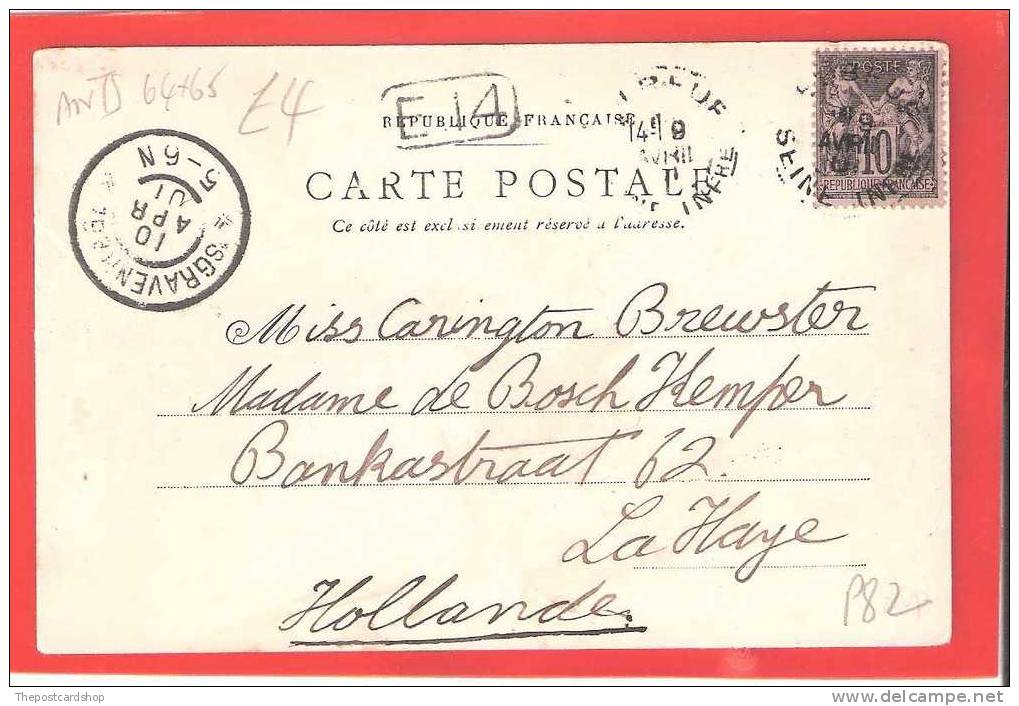 AnD 64+65
£4
E 14
REPUBLIQUE FRANÇAISE
CARTE POSTALE
Ce côté est exclusivement réservé à l'adresse.
9
AVRIL
SEINE INFRE
POSTE
10
REPUBLIQUE FRANÇAISE
5-6N
10
APR
01
Miss Carington Brewster
Madame de Bosch Kemper
Bankastraat 62.
La Haye
Hollande.
P82
Thepostcardshop
www.delcampe.net